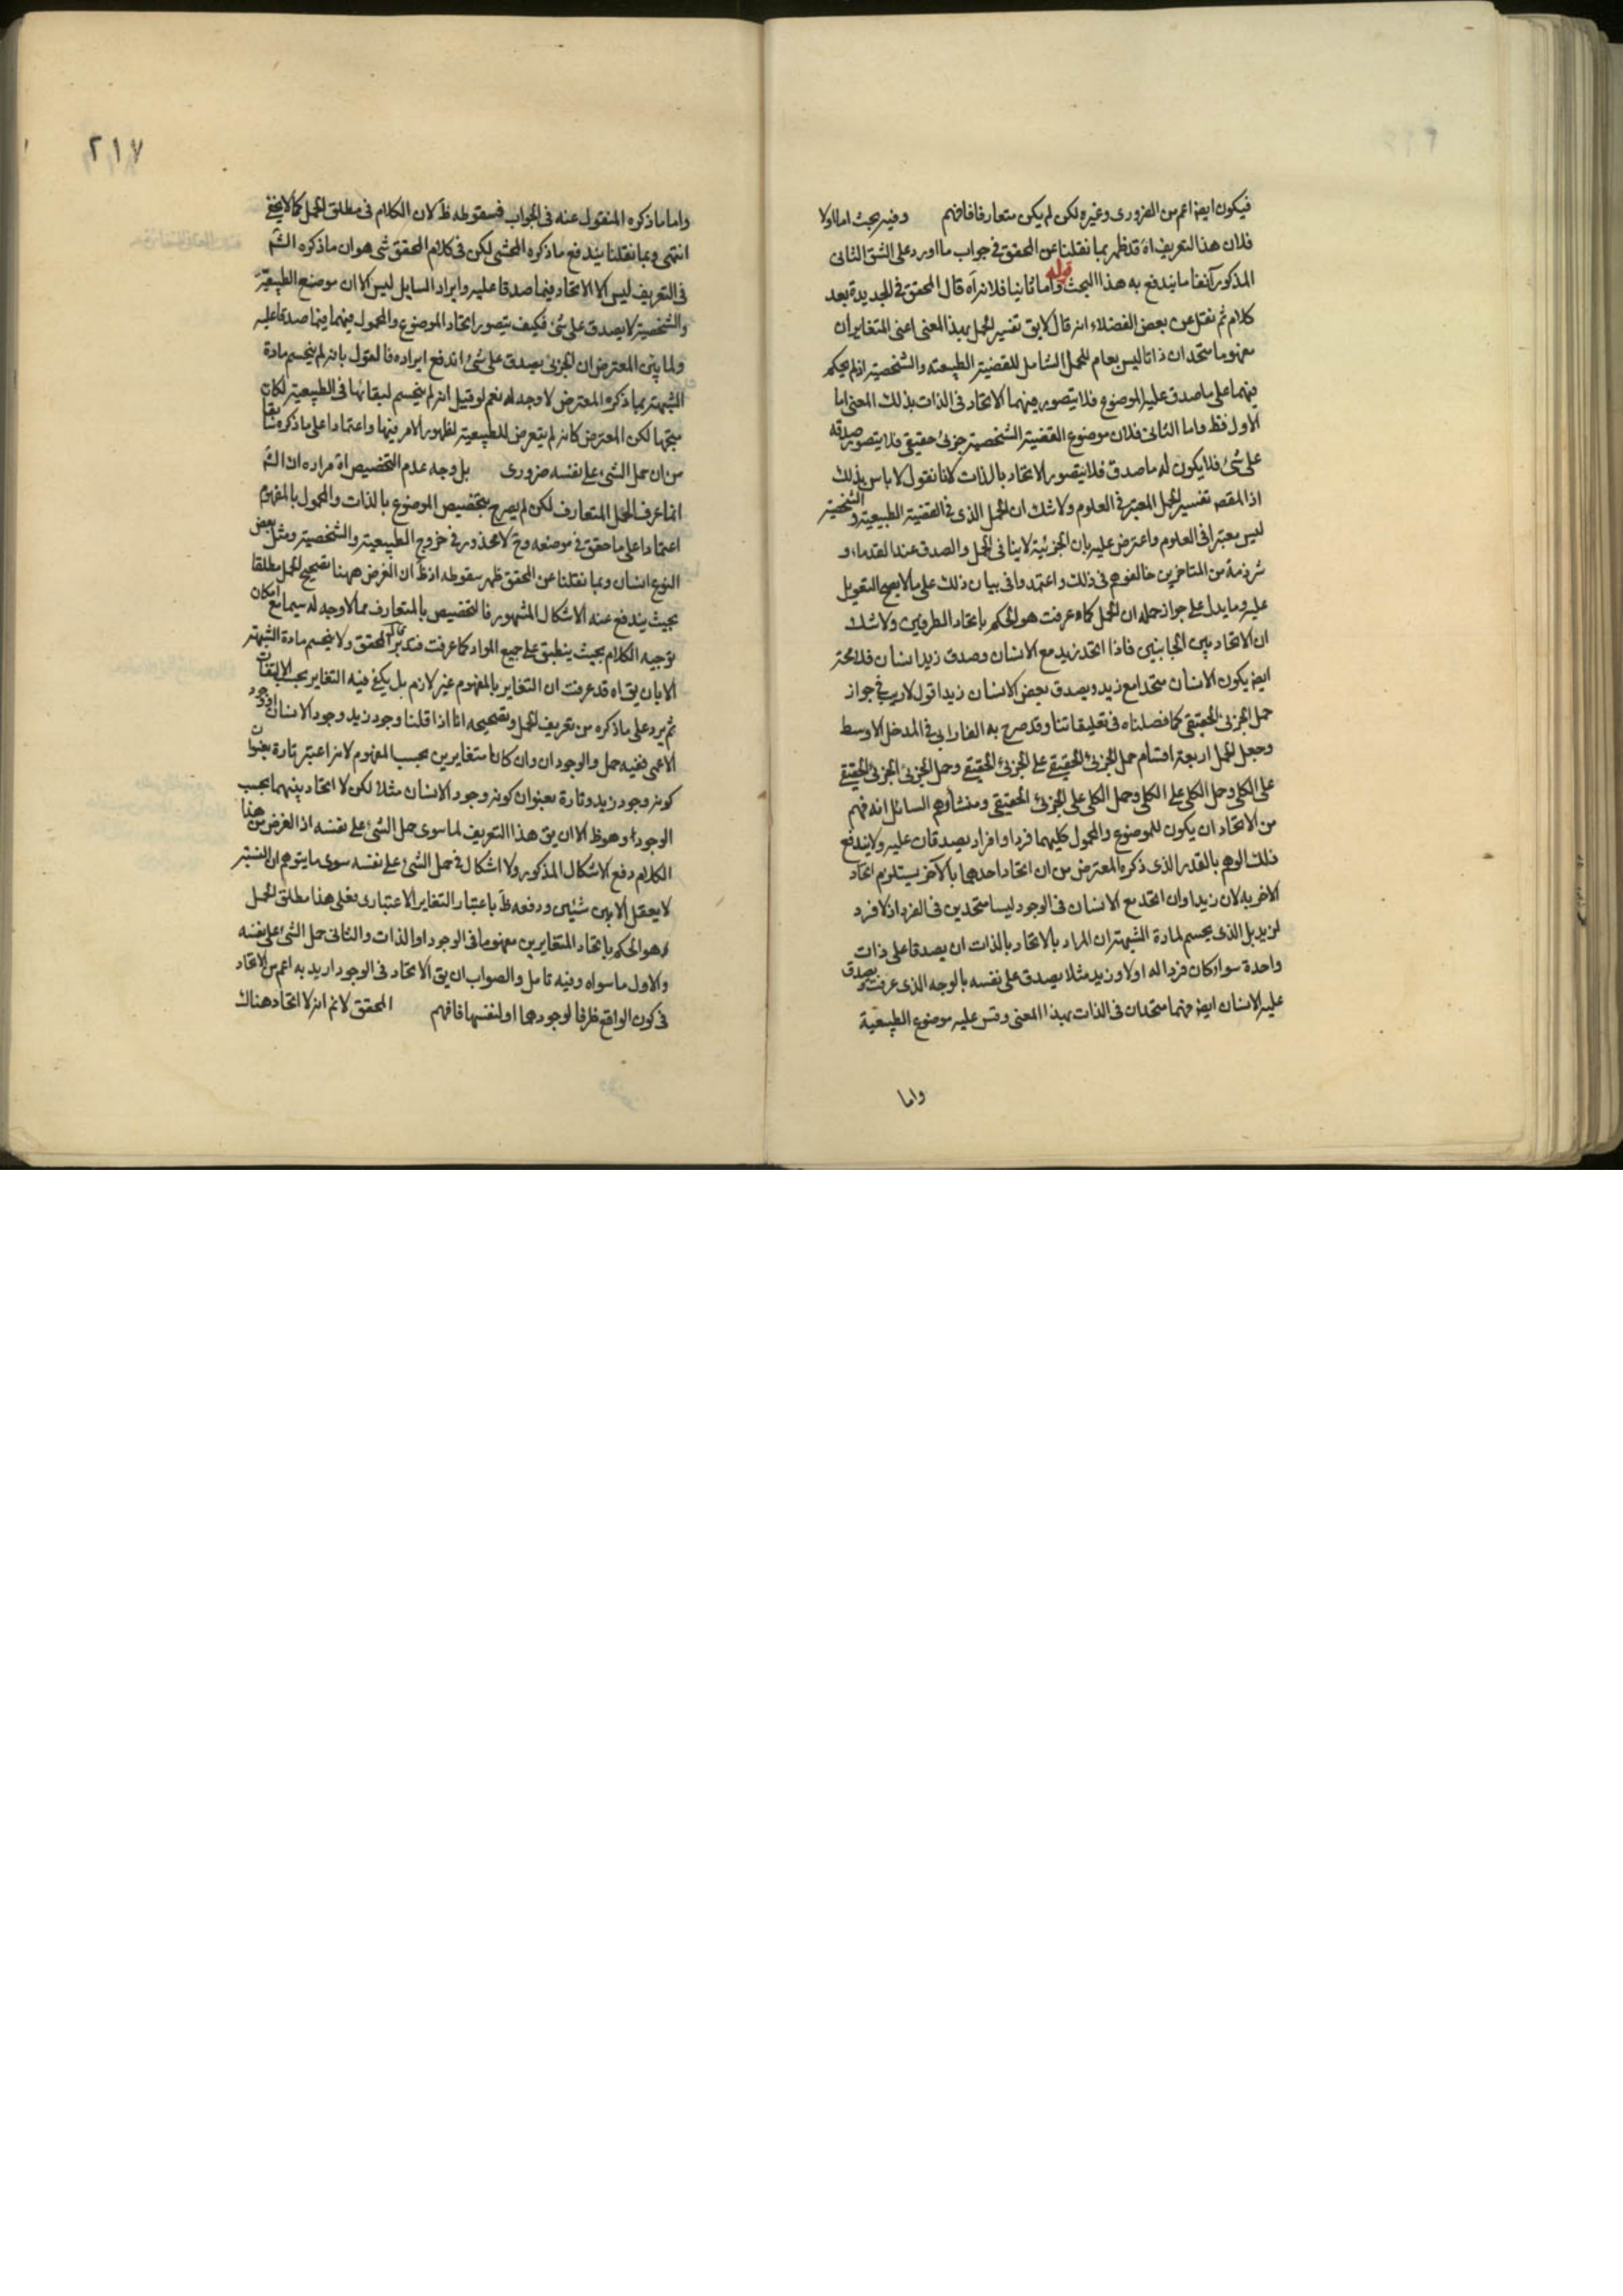 فيكون ايضا اعم من الضرورى وغيره لكن لم يكن متعارفا فافهم وفيه بحث اما اولا
فلان هذا التعريف اه قد ظهر بما نقلنا عن المحقق في جواب ما اورد على الشق الثانى
المذكور آنفا ما يندفع به هذا البحث قوله واما ثانيا فلانه اه قال المحقق في الجديدة بعد
كلام ثم نقل عن بعض الفضلاء انه قال لا يق تفسير الحمل بهذا المعنى اعنى المتغايران
مفهوما متحدان ذاتا ليس بعام للحمل الشامل للقضية الطبيعته والشخصية اذ لم يحكم
فيهما على ما صدق عليه الموضوع فلا يتصور فيهما الاتحاد فى الذات بذلك المعنى اما
الاول فظ واما الثانى فلان موضوع القضية الشخصية جزئى حقيقى فلا يتصور صدقه
على شئ فلا يكون له ما صدق فلا يتصور الاتحاد بالذات لانا نقول لا باس بذلك
اذ المقصه تفسير الحمل المعتبر في العلوم ولا شك ان الحمل الذى في القضية الطبيعية والشخصية
ليس معتبرا فى العلوم واعترض عليه بان الجزئية لا ينافى الحمل والصدق عند القدماء و
شرذمة من المتاخرين خالفوهم فى ذلك واعتمدوا فى بيان ذلك على ما لا يصح التعويل
عليه ومما يدل على جواز حمله ان الحمل كما عرفت هو الحكم باتحاد الطرفين ولا شك
ان الاتحاد بين الجانبين فاذا اتحد زيد مع الانسان وصدق زيد انسان فلا محة
ايضا يكون الانسان متحدا مع زيد ويصدق بعض الانسان زيد اقول لا ريب فى جواز
حمل الجزئى الحقيقى كما فصلناه فى تعليقاتنا وقد صرح به الفارابى فى المدخل الاوسط
وجعل الحمل اربعة اقسام حمل الجزئى الحقيقى على الجزئى الحقيقى وحمل الجزئى الحقيقى
على الكلى وحمل الكلى على الكلى وحمل الكلى على الجزئى الحقيقى ومنشأ وهم السائل انه فهم
من الاتحاد ان يكون للموضوع والمحمول كليهما فرد او افراد يصدقان عليه ولا يندفع
ذلك الوهم بالقدر الذى ذكره المعترض من ان اتحاد احدهما بالآخر يستلزم اتحاد
الاخر به لان زيدا وان اتحد مع الانسان فى الوجود ليسا متحدين فى الفرد اذ لا فرد
لزيد بل الذى يحسم لمادة الشبهة ان المراد بالاتحاد بالذات ان يصدقا على ذات
واحدة سواء كان فردا له او لا وزيد مثلا يصدق على نفسه بالوجه الذى عرفت ويصدق
عليه الانسان ايضا فهما متحدان فى الذات بهذا المعنى وقس عليه موضوع الطبيعية
واما
٢١٧
واما ما ذكره المنقول عنه فى الجواب فسقوطه ظ لان الكلام فى مطلق الحمل كما لا يخفى
انتهى وبما نقلنا يندفع ما ذكره المحشى لكن فى كلام المحقق شى هو ان ما ذكره الشم
فى التعريف ليس الا الاتحاد فيما صدقا عليه وايراد السايل ليس الا ان موضوع الطبيعية
والشخصية لا يصدق على شئ فكيف يتصور اتحاد الموضوع والمحمول فيهما فيما صدقا عليه
ولما بين المعترض ان الجزئى يصدق على شئ اندفع ايراده فالقول بانه لم ينحسم مادة
الشبهة بما ذكره المعترض لا وجه له نعم لو قيل انه لم ينحسم لبقائها فى الطبيعية لكان
متجها لكن المعترض كانه لم يتعرض للطبيعية لظهور الامر فيها واعتمادا على ما ذكره سابقا
من ان حمل الشئ على نفسه ضرورى بل وجه عدم التخصيص اه مراده ان الشم
انما عرف الحمل المتعارف لكن لم يصرح بتخصيص الموضوع بالذات والمحمول بالمفهوم
اعتمادا على ما حقق فى موضعه وح لا محذور فى خروج الطبيعية والشخصية ومثل بعض
النوع انسان وبما نقلنا عن المحقق ظهر سقوطه اذ ظ ان الغرض ههنا تصحيح الحمل مطلقا
بحيث يندفع عنه الاشكال المشهور فالتخصيص بالمتعارف مما لا وجه له سيما مع امكان
توجيه الكلام بحيث ينطبق على جميع المواد كما عرفت فتدبر قال المحقق ولا ينحسم مادة الشبهة
الا بان يق اه قد عرفت ان التغاير بالمفهوم غير لازم بل يكفى فيه التغاير بحسب الالتفات
ثم يرد على ما ذكره من تعريف الحمل وتصحيحه انا اذا قلنا وجود زيد وجود الانسان او وجود
الاعمى ففيه حمل والوجودان وان كانا متغايرين بحسب المفهوم لانه اعتبر تارة بعنوان
كونه وجود زيد وتارة بعنوان كونه وجود الانسان مثلا لكن لا اتحاد بينهما بحسب
الوجود وهو ظ الا ان يق هذا التعريف لما سوى حمل الشئ على نفسه اذ الغرض من هذا
الكلام دفع الاشكال المذكور ولا اشكال فى حمل الشئ على نفسه سوى ما يتوهم ان النسبة
لا يعقل الا بين شيئين ودفعه ظ باعتبار التغاير الاعتبارى فعلى هذا مطلق الحمل
هو الحكم باتحاد المتغايرين مفهوما فى الوجود او الذات والثانى حمل الشئ على نفسه
والاول ما سواه وفيه تامل والصواب ان يق الاتحاد فى الوجود اريد به اعم من الاتحاد
فى كون الواقع ظرفا لوجودهما او لنفسهما فافهم المحقق لا نم انه لا اتحاد هناك